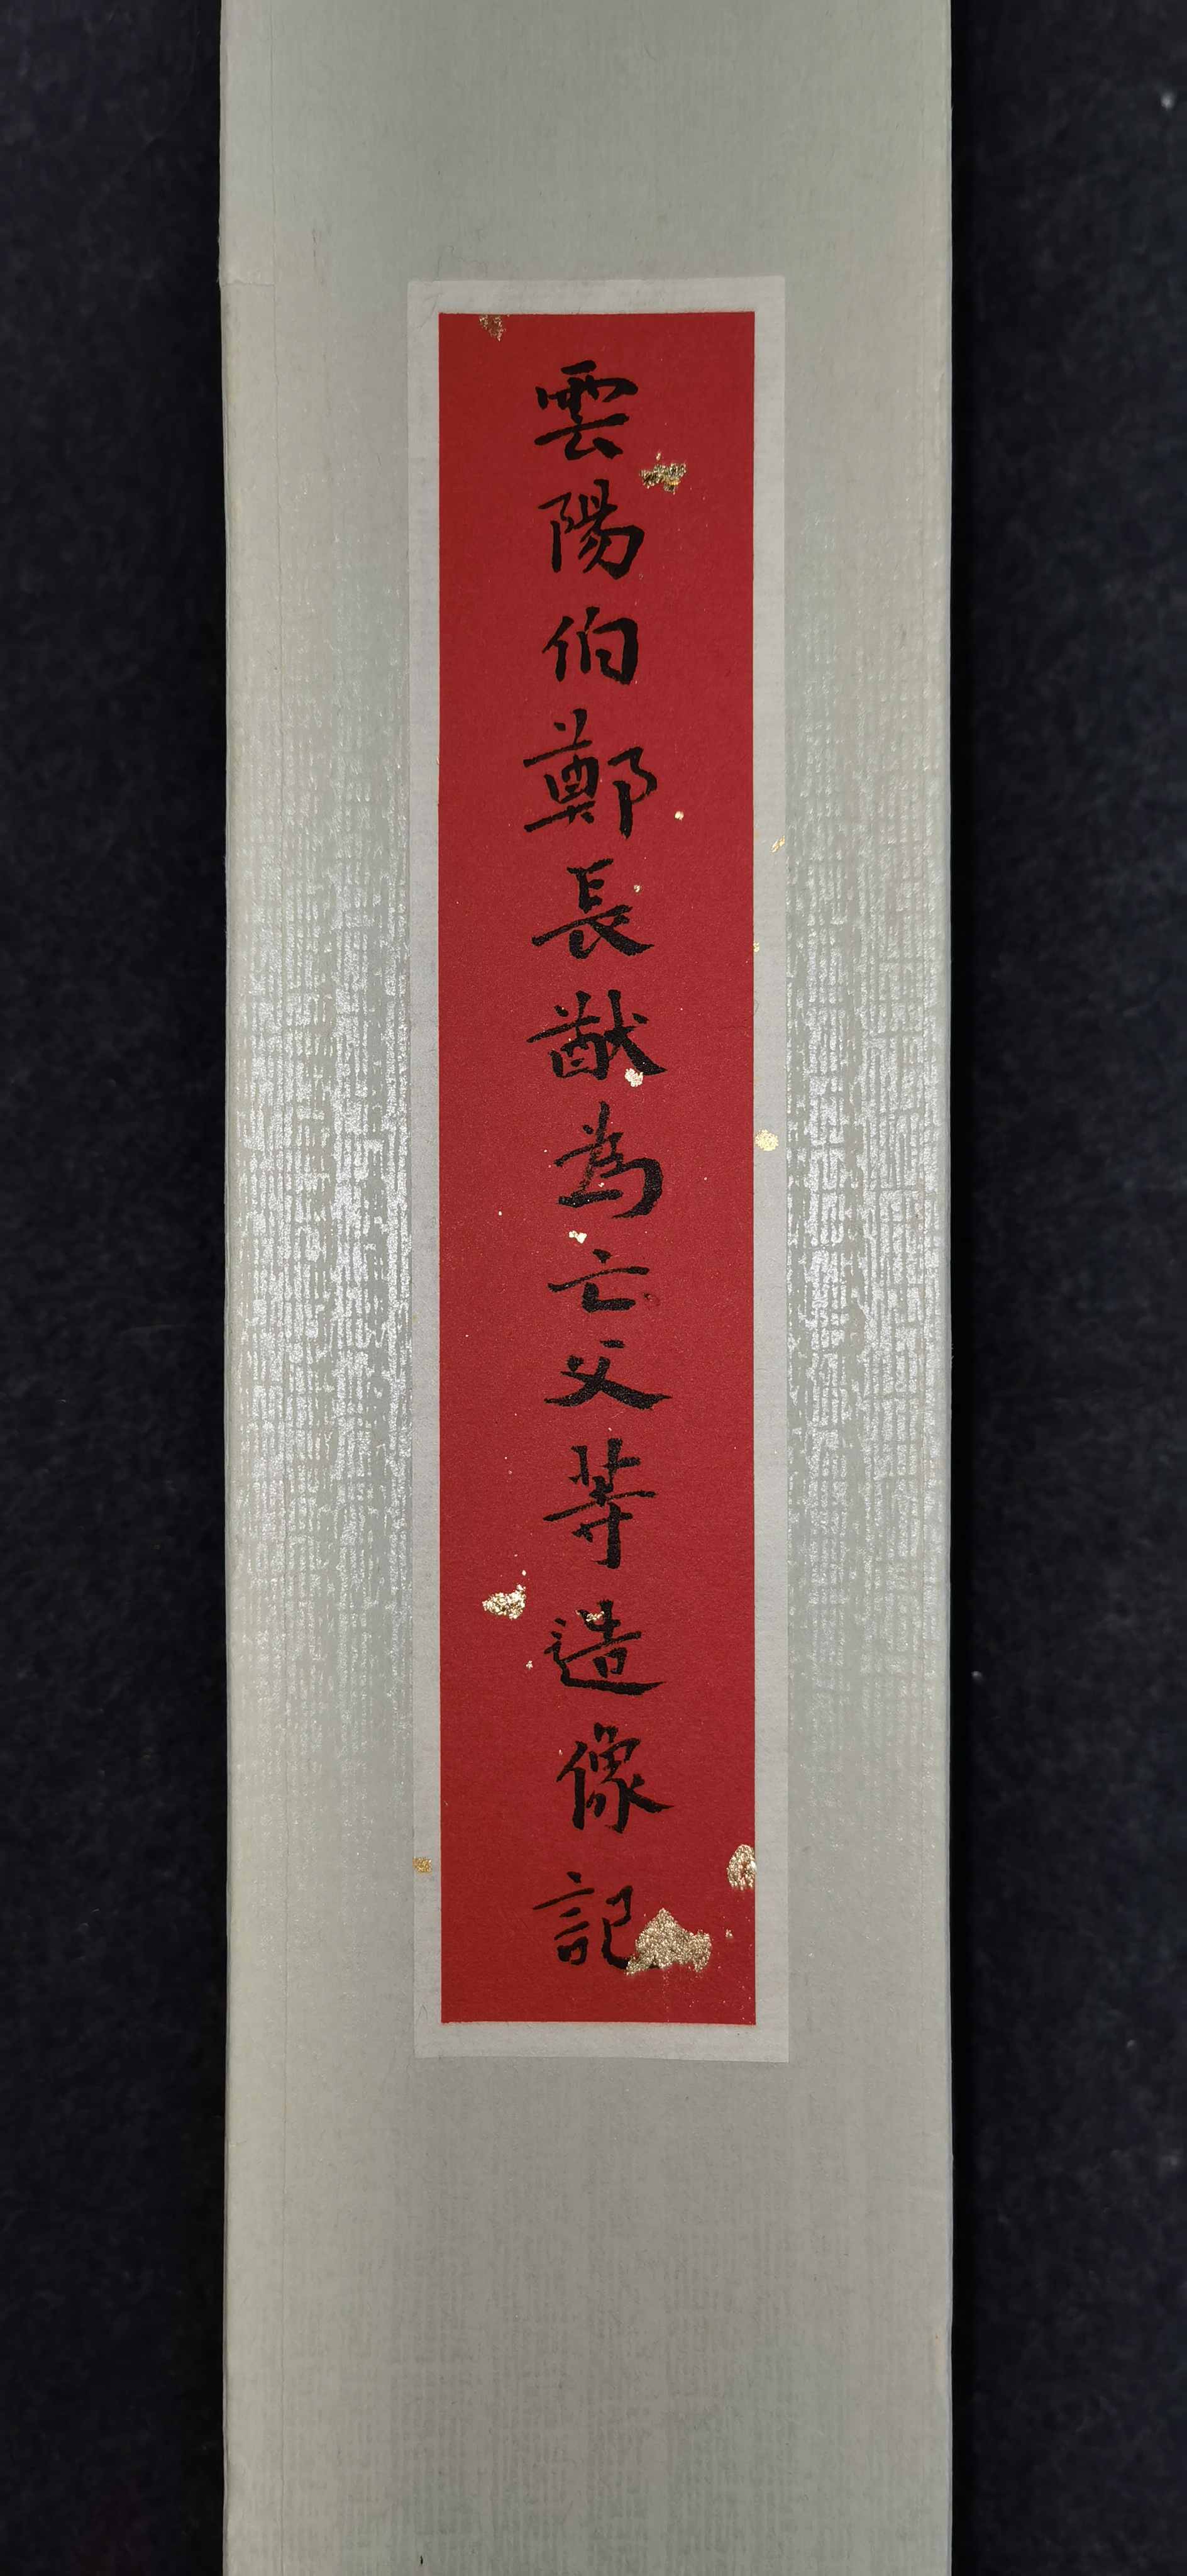 雲陽伯鄭長猷為亡父等造像記